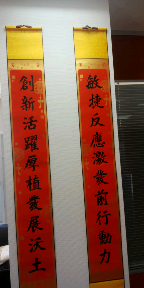 敏捷反應激發前行動力
創新活躍厚植發展沃土